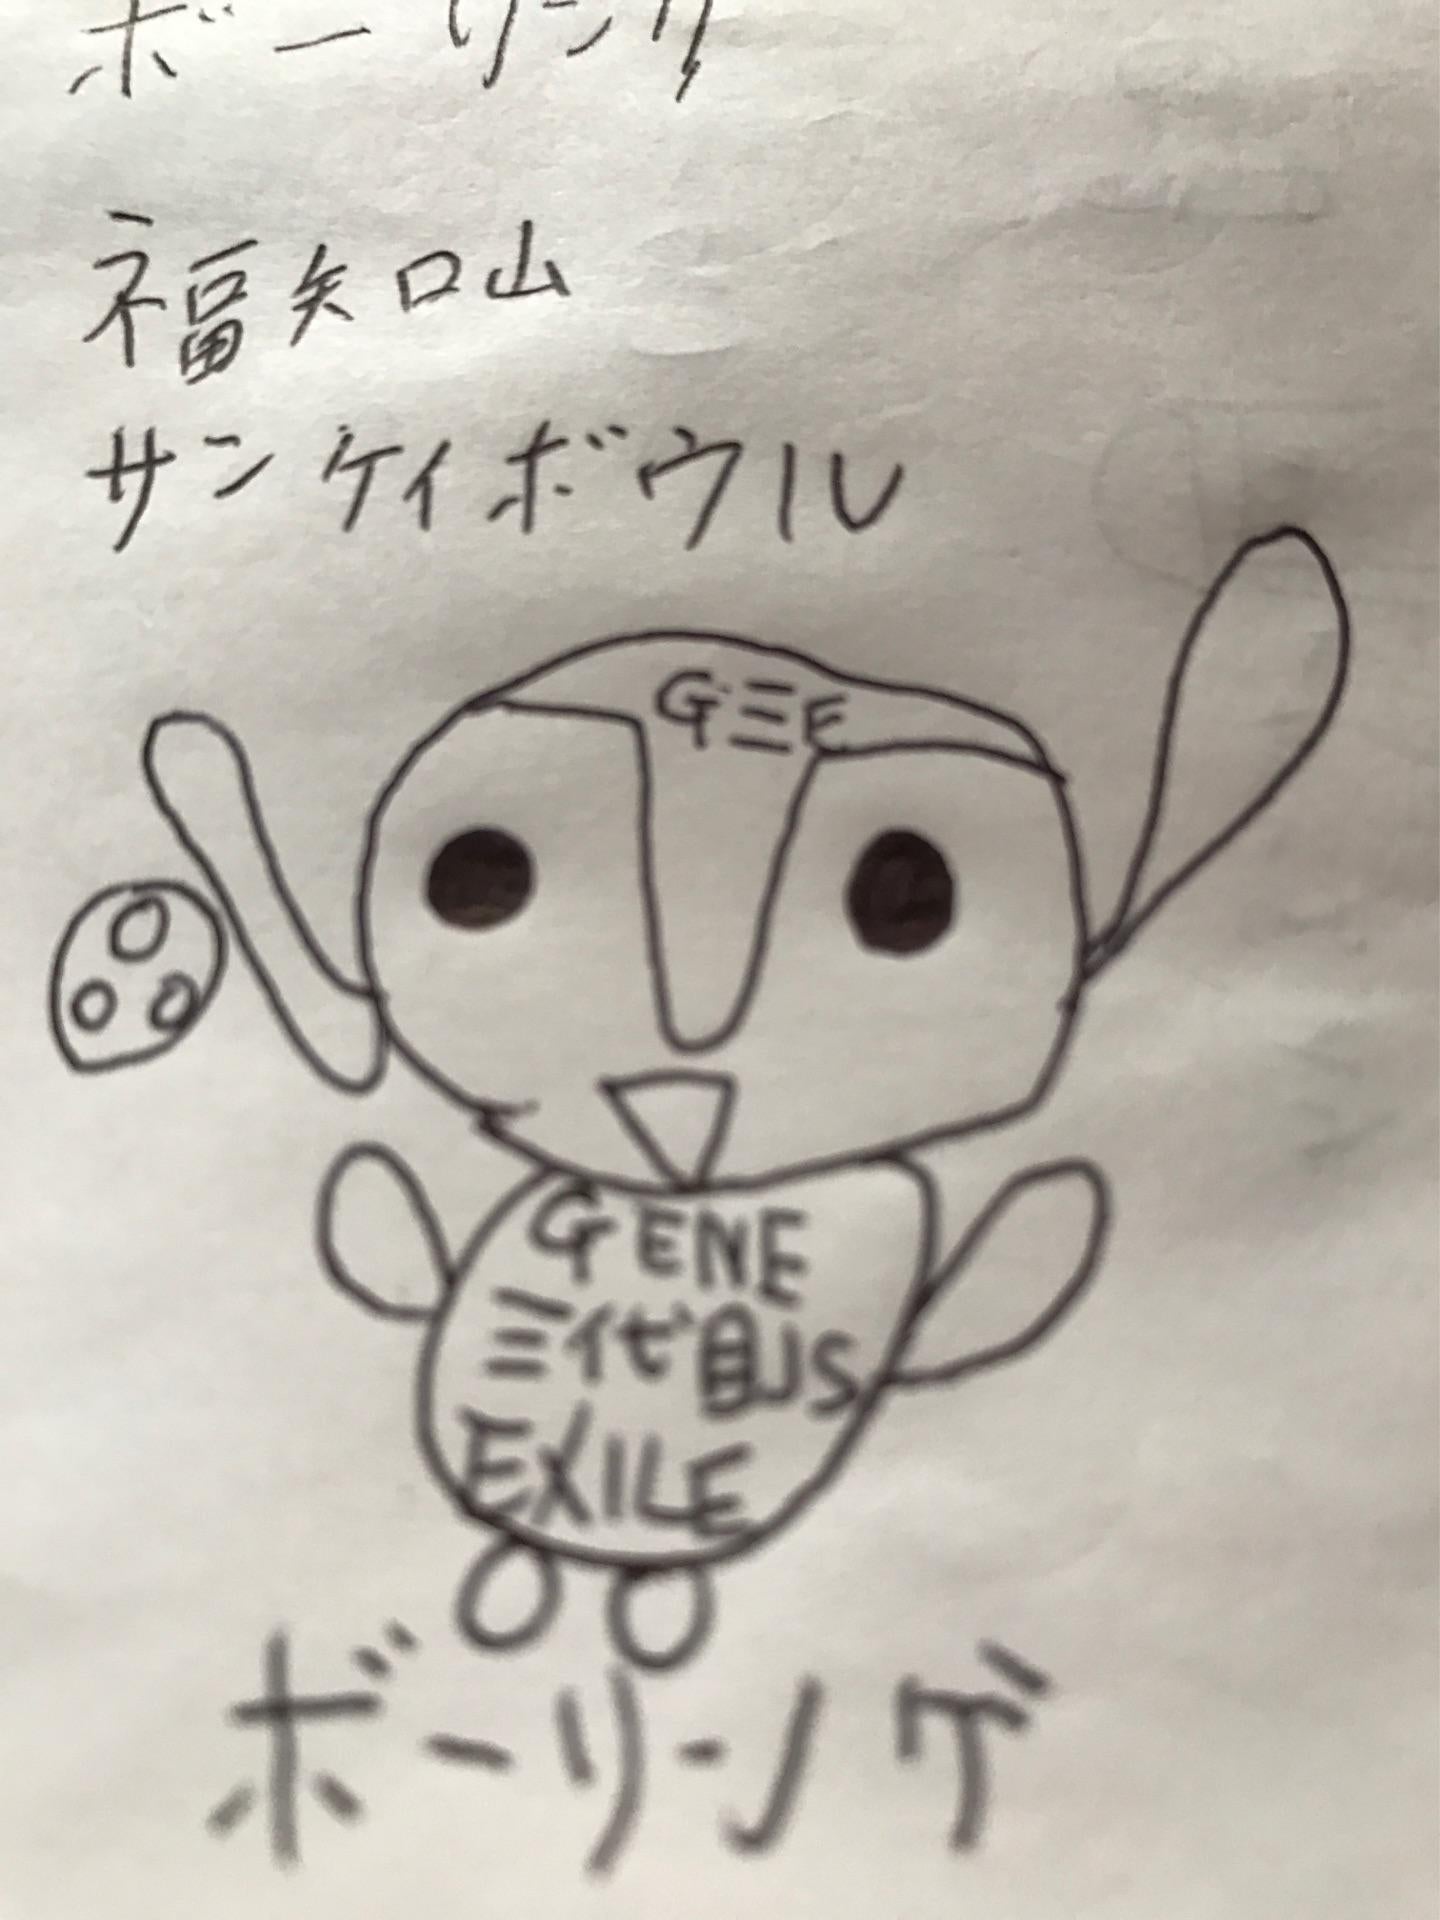 ボーリング
福知山
サンケイボウル
G三E
GENE
三代目JS
EXILE
ボーリング